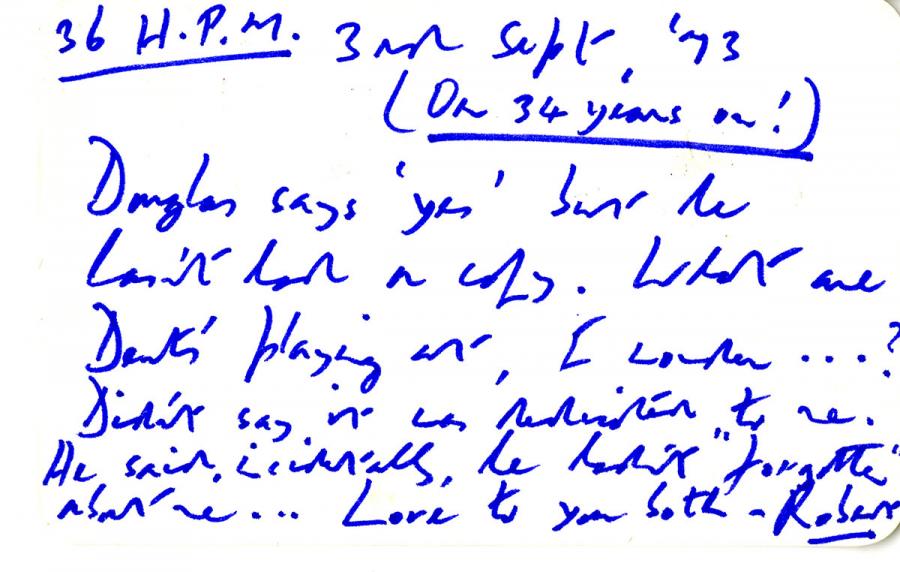 36 H.P.M. 3rd Sept, '73
(On 34 years on!)
Douglas says 'yes' but he
hasn't had a copy. What are
Dents' playing at, I wonder ...?
Didn't say it was dedicated to me.
He said, incidentally, he hadn't "forgotten"
about me ... Love to you both - Robert